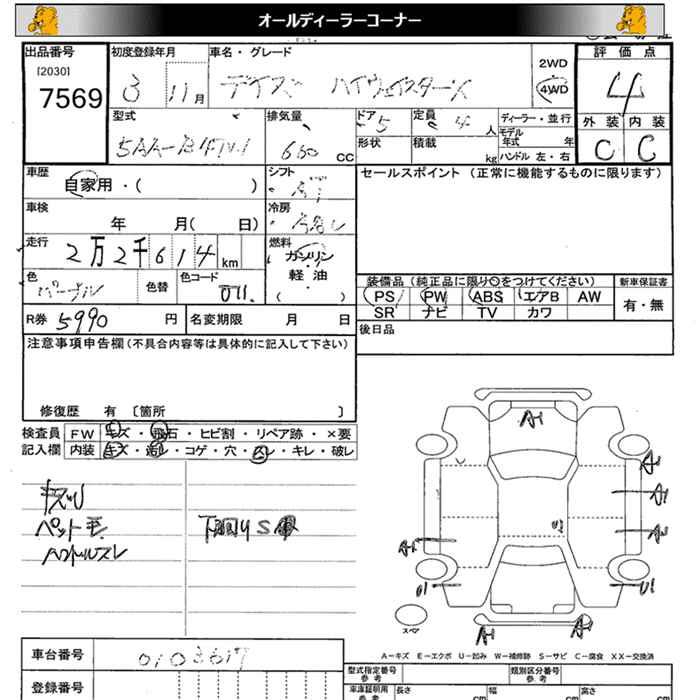 オールディーラーコーナー
出品番号
[2030]
7569
初度登録年月
3 11月
車名・グレード
デイズ ハイウェイスターX
2WD
4WD
評価点
4
外装 内装
C C
型式
5AA-B
排気量
660 CC
ドア 5
形状
定員 4 人
積載 kg
ディーラー・並行
モデル年式 年
ハンドル 左・右
車歴
自家用・( )
シフト
AT
セールスポイント(正常に機能するものに限ります)
車検
年 月( 日)
冷房
走行
2万2千614km
燃料
ガソリン
・
軽油
( )
色
パープル
色替
色コード
装備品(純正品に限り○をつけてください)
PS PW ABS エアB AW
SR ナビ TV カワ
新車保証書
有・無
R券 5990 円
名変期限 月 日
後日品
注意事項申告欄(不具合内容等は具体的に記入して下さい)
修復歴 有 〔箇所 〕
検査員 FW キズ・飛石・ヒビ割・リペア跡・×要
記入欄 内装 キズ・汚レ・コゲ・穴・スレ・キレ・破レ
キズU
ペット毛
ハンドルスレ
下廻りS
A1
A1
A1
A1
U1
U1
A1
A1
スペア
A-キズ E-エクボ U-凹み W-補修跡 S-サビ C-腐食 XX-交換済
車台番号
0103617
登録番号
型式指定番号
参考
類別区分番号
参考
車庫証明用
参考
長さ cm
幅 cm
高さ cm